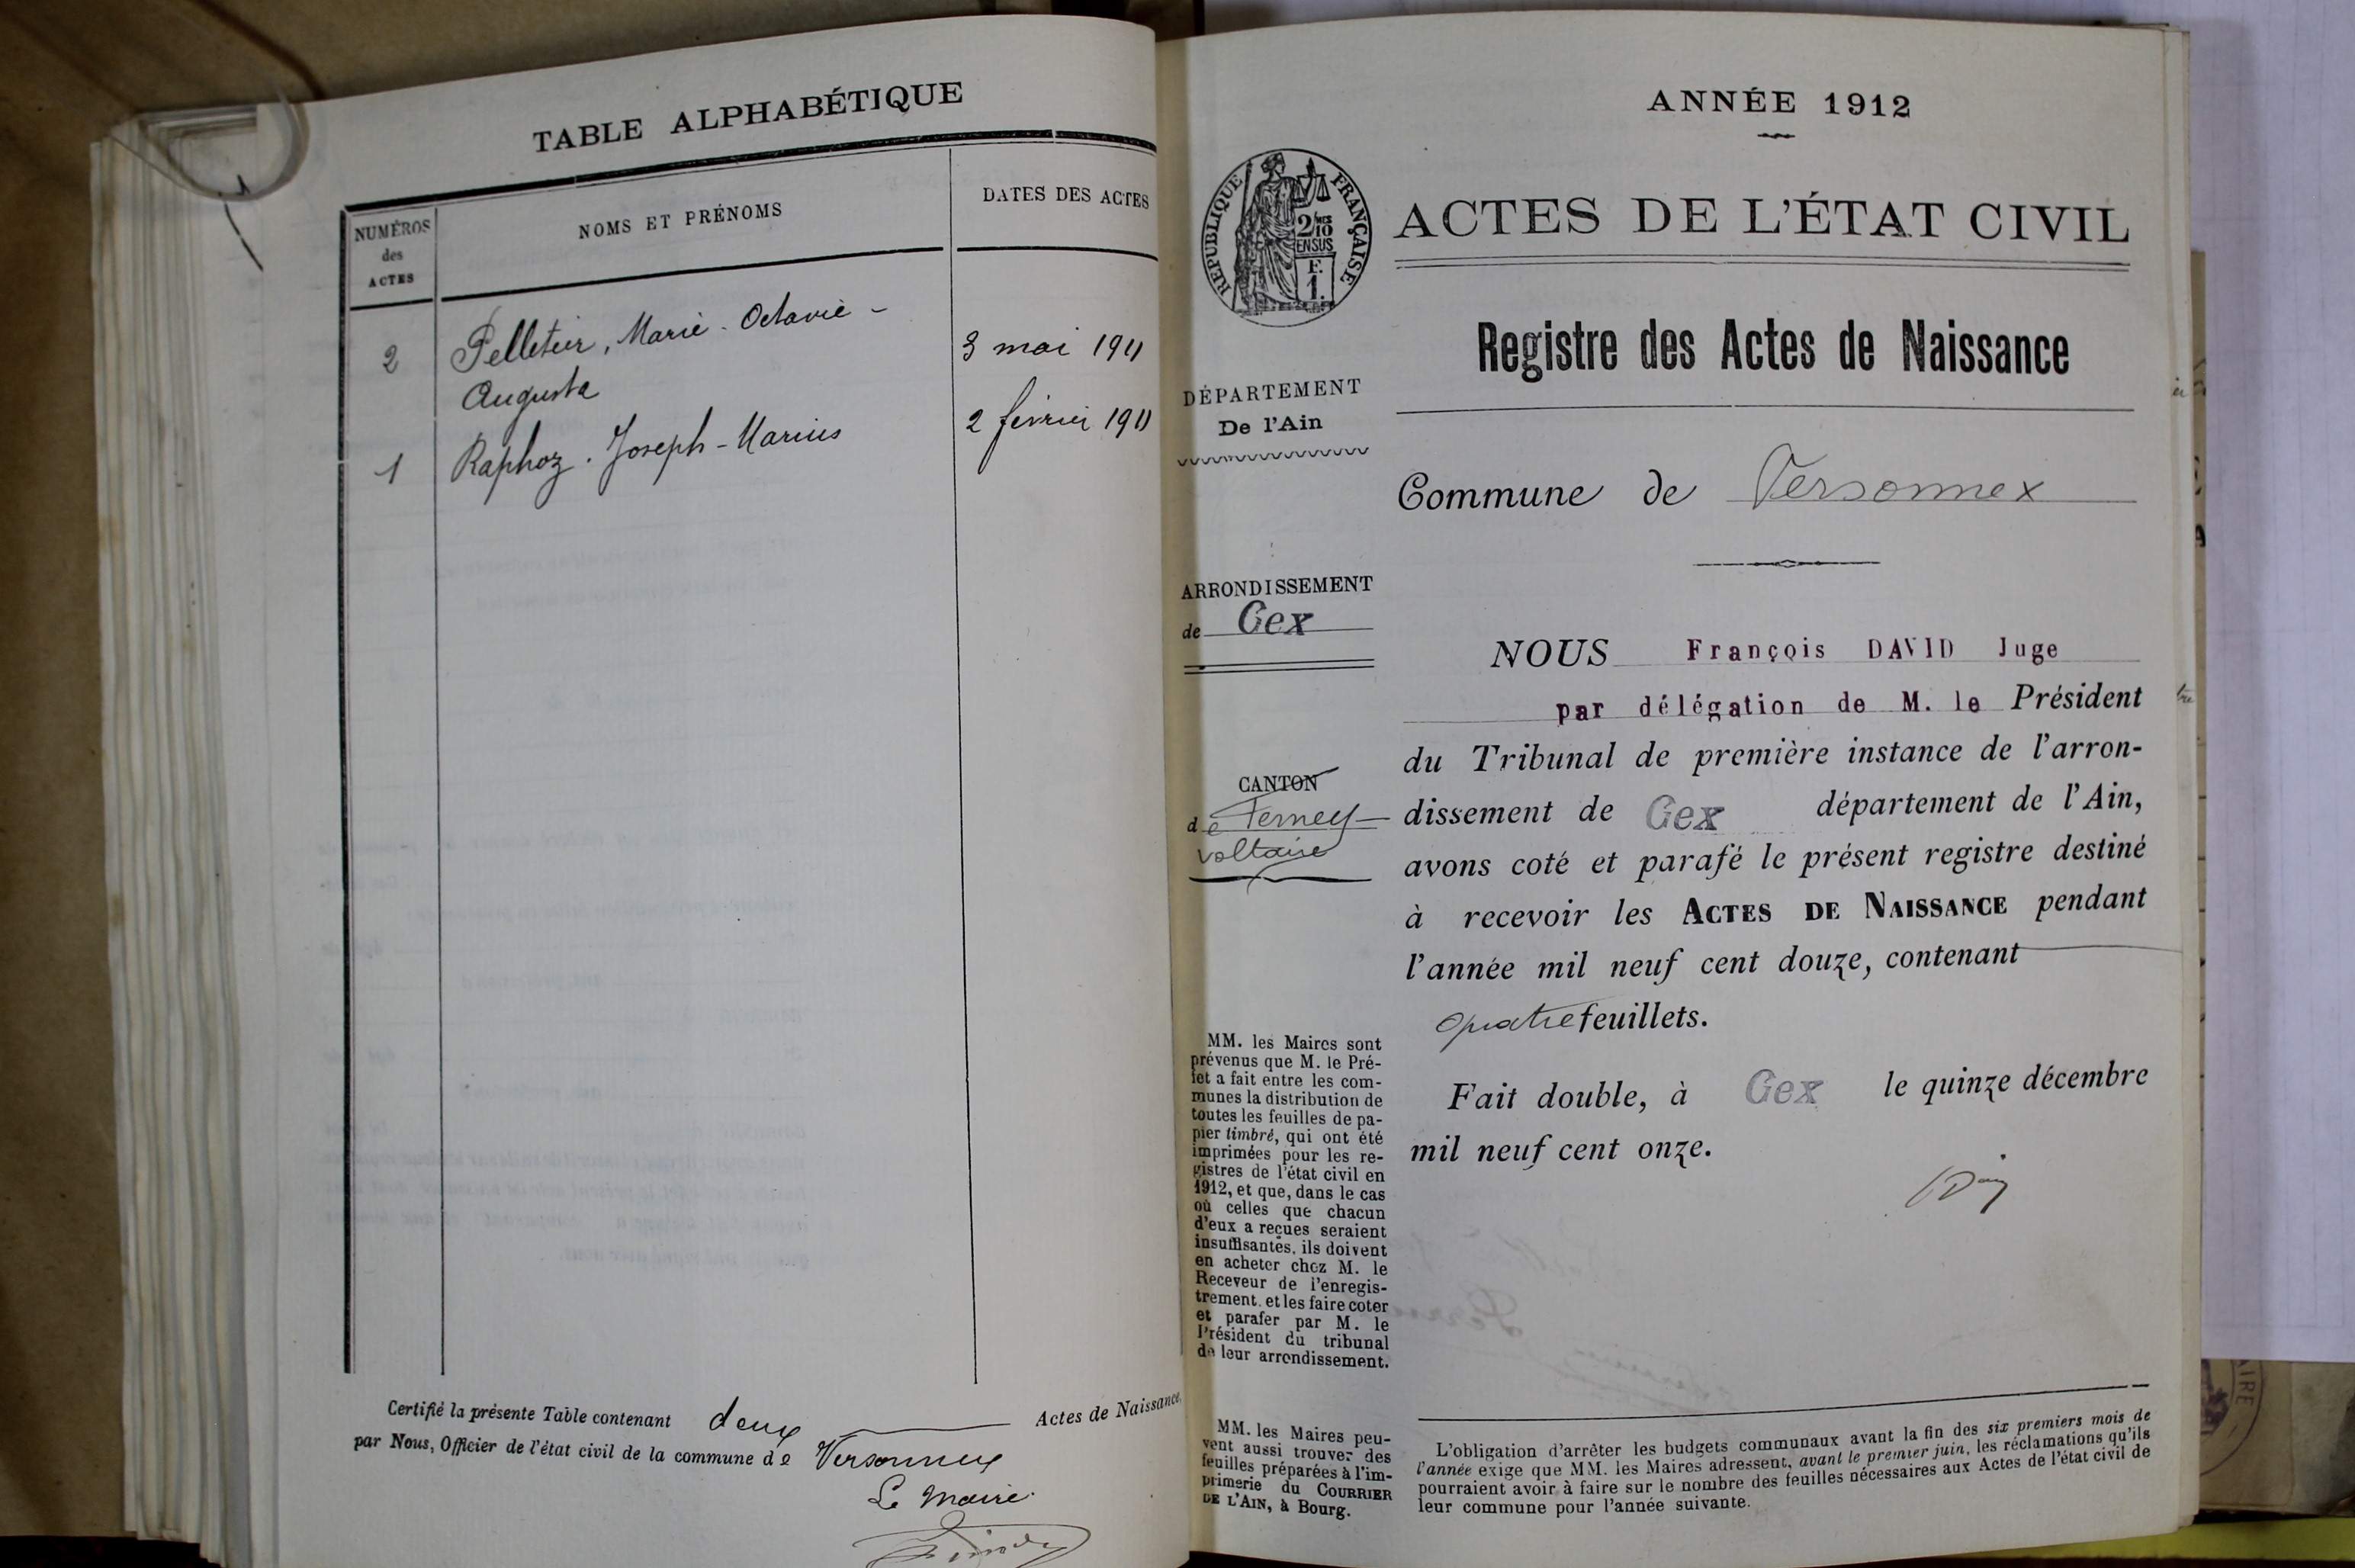 TABLE ALPHABÉTIQUE
NUMÉROS
des
ACTES
NOMS ET PRÉNOMS
DATES DES ACTES
2 Pelletier, Marie-Octavie-
Augusta
3 mai 1911
1 Raphoz. Joseph-Marius
2 février 1911
Certifié la présente Table contenant deux Actes de Naissance,
par Nous, Officier de l'état civil de la commune de Versonnex
Le Maire
ANNÉE 1912
RÉPUBLIQUE FRANÇAISE
2/10
EN SUS
F.
1.
ACTES DE L'ÉTAT CIVIL
Registre des Actes de Naissance
DÉPARTEMENT
De l'Ain
Commune de Versonnex
ARRONDISSEMENT
de Gex
CANTON
de Ferney
Voltaire
NOUS François DAVID Juge
par délégation de M. le Président
du Tribunal de première instance de l'arron-
dissement de Gex département de l'Ain,
avons coté et parafé le présent registre destiné
à recevoir les ACTES DE NAISSANCE pendant
l'année mil neuf cent douze, contenant
quatre feuillets.
Fait double, à Gex le quinze décembre
mil neuf cent onze.
MM. les Maires sont
prévenus que M. le Pré-
fet a fait entre les com-
munes la distribution de
toutes les feuilles de pa-
pier timbré, qui ont été
imprimées pour les re-
gistres de l'état civil en
1912, et que, dans le cas
où celles que chacun
d'eux a reçues seraient
insuffisantes, ils doivent
en acheter chez M. le
Receveur de l'enregis-
trement, et les faire coter
et parafer par M. le
Président du tribunal
de leur arrondissement.
MM. les Maires peu-
vent aussi trouver des
feuilles préparées à l'im-
primerie du COURRIER
DE L'AIN, à Bourg.
L'obligation d'arrêter les budgets communaux avant la fin des six premiers mois de
l'année exige que MM. les Maires adressent, avant le premier juin, les réclamations qu'ils
pourraient avoir à faire sur le nombre des feuilles nécessaires aux Actes de l'état civil de
leur commune pour l'année suivante.